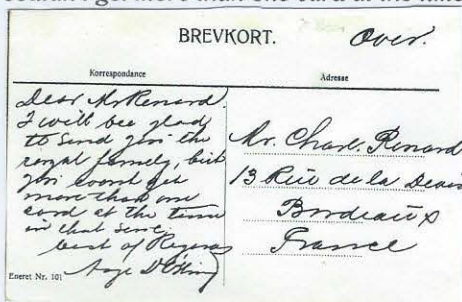 BREVKORT.
Over.
Korrespondance
Adresse
Dear Mr Renard
I will bee glad
to send you the
royal famely, but
you coont get
more than one
card at the time
in that serie,
best of Regards
Aage
Mr. Charl. Renard
13 Rue de la Devise
Bordeaux
France
Eneret Nr. 101